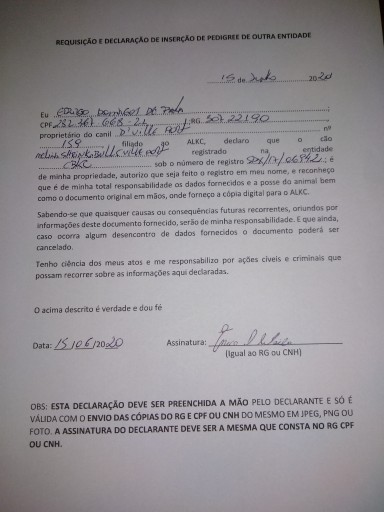 REQUISIÇÃO E DECLARAÇÃO DE INSERÇÃO DE PEDIGREE DE OUTRA ENTIDADE
15 de Junho 2020
Eu
CPF RG 30722190
proprietário do canil D'Ville nº
159 filiado ao ALKC, declaro que o cão
registrado na entidade
CBKC sob o número de registro é
de minha propriedade, autorizo que seja feito o registro em meu nome, e reconheço
que é de minha total responsabilidade os dados fornecidos e a posse do animal bem
como o documento original em mãos, onde forneço a cópia digital para o ALKC.
Sabendo-se que quaisquer causas ou consequências futuras recorrentes, oriundos por
informações deste documento fornecido, serão de minha responsabilidade. E que ainda,
caso ocorra algum desencontro de dados fornecidos o documento poderá ser
cancelado.
Tenho ciência dos meus atos e me responsabilizo por ações cíveis e criminais que
possam recorrer sobre as informações aqui declaradas.
O acima descrito é verdade e dou fé
Data: 15/06/2020 Assinatura:
(Igual ao RG ou CNH)
OBS: ESTA DECLARAÇÃO DEVE SER PREENCHIDA A MÃO PELO DECLARANTE E SÓ É
VÁLIDA COM O ENVIO DAS CÓPIAS DO RG E CPF OU CNH DO MESMO EM JPEG, PNG OU
FOTO. A ASSINATURA DO DECLARANTE DEVE SER A MESMA QUE CONSTA NO RG CPF
OU CNH.